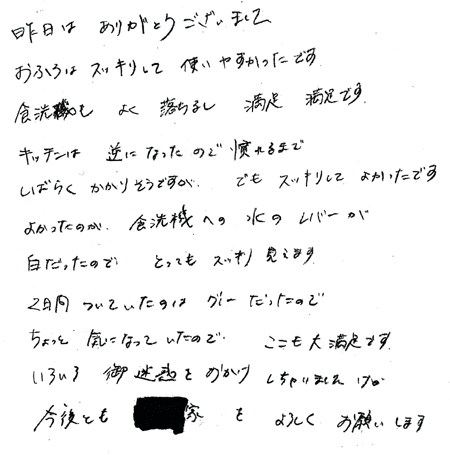 昨日は ありがとうございまして
おふろは スッキリして 使いやすかったです
食洗機も よく 落ちるし 満足 満足です
キッチンは 逆になったので 慣れるまで
しばらく かかりそうですが、でも スッキリして よかったです
よかったのが、食洗機への 水の レバーが
白だったので とっても スッキリ 見えます
2日間 ついていたのは グレーだったので
ちょっと 気になっていたので、ここも大満足です
いろいろ 御迷惑を おかけ しちゃいましたけど
今後とも 家を よろしく お願いします